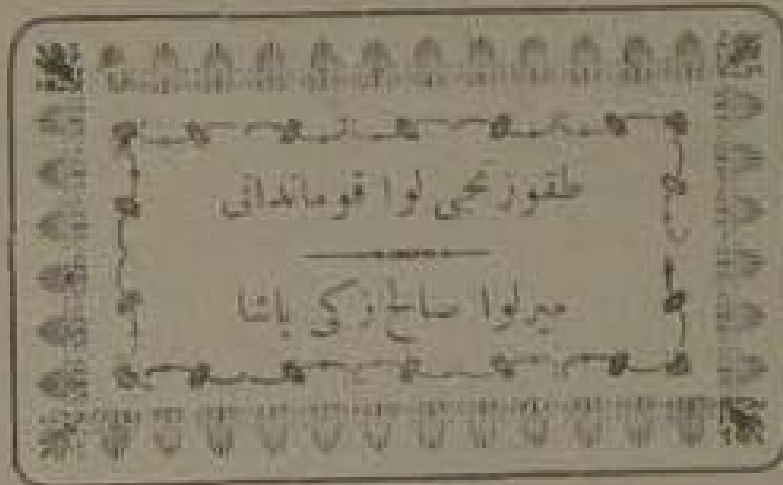 طقوزنجی لوا قوماندانی
میرلوا صالح زکی پاشا